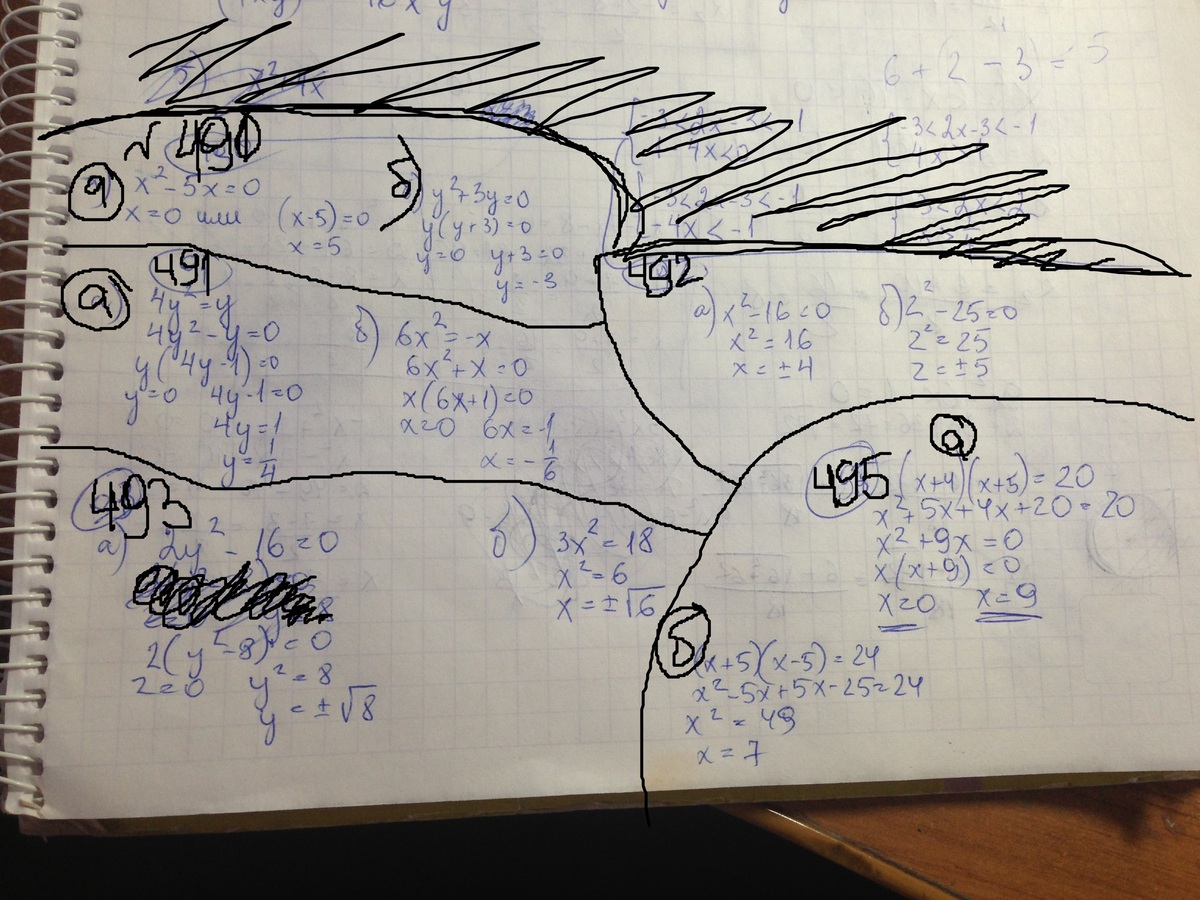 6 + (2 - 3) = 5
-3<2x-3<-1
√490
а) x²-5x=0
x=0 или (x-5)=0
x=5
б) y²+3y=0
y(y+3)=0
y=0 y+3=0
y=-3
491
а)
4y²=y
4y²-y=0
y(4y-1)=0
y=0 4y-1=0
4y=1
y=1/4
б) 6x²=-x
6x²+x=0
x(6x+1)=0
x=0 6x=-1
x=-1/6
492
а) x²-16=0
x²=16
x=±4
б) z²-25=0
z²=25
z=±5
493
а) 2y²-16=0
2(y²-8)=0
2=0 y²=8
y=±√8
б) 3x²=18
x²=6
x=±√6
а
495 (x+4)(x+5)=20
x²+5x+4x+20=20
x²+9x=0
x(x+9)=0
x=0 x=9
б
(x+5)(x-5)=24
x²-5x+5x-25=24
x²=49
x=7